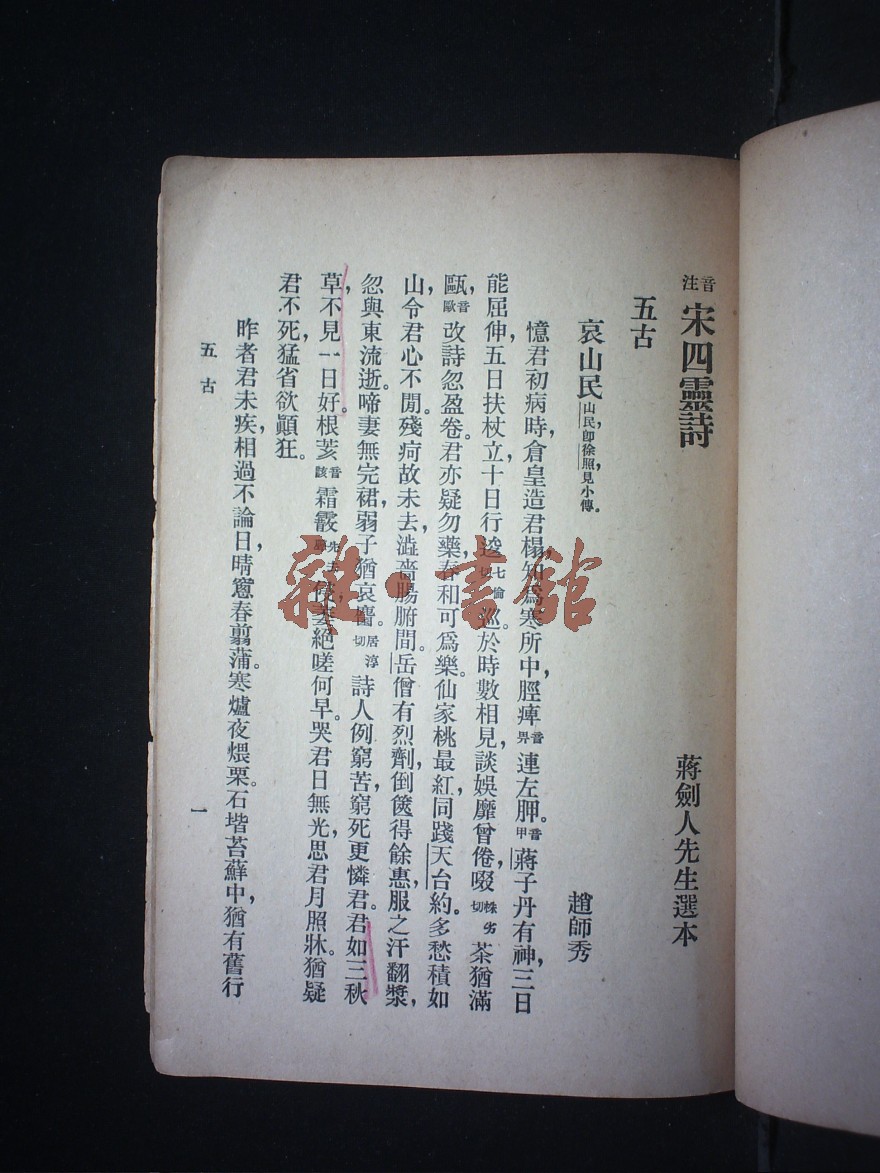 音注 宋四靈詩
蔣劍人先生選本
五古
哀山民 山民卽徐照,見小傳。
趙師秀
憶君初病時,倉皇造君榻,知爲寒所中,脛痺音畀連左胛。音甲蔣子丹有神,三日
能屈伸,五日扶杖立,十日行逡七倫切巡。於時數相見,談娛靡曾倦,啜株劣切茶猶滿
甌,音歐改詩忽盈卷。君亦疑勿藥,春和可爲樂,仙家桃最紅,同踐天台約。多愁積如
山,令君心不閒。殘疴故未去,澁嗇腸腑間。岳僧有烈劑,倒篋得餘惠,服之汗翻漿,
忽與東流逝。啼妻無完裙,弱子猶哀麕。居淳切詩人例窮苦,窮死更憐君。君如三秋
草,不見一日好。根荄音該霜霰先去聲侵,萎絕嗟何早。哭君日無光,思君月照牀。猶疑
君不死,猛省欲顚狂。
昨者君未疾,相過不論日,晴窻春翦蒲。寒爐夜煨栗。石堦苔蘇中,猶有舊行
五古
一
雜·書館